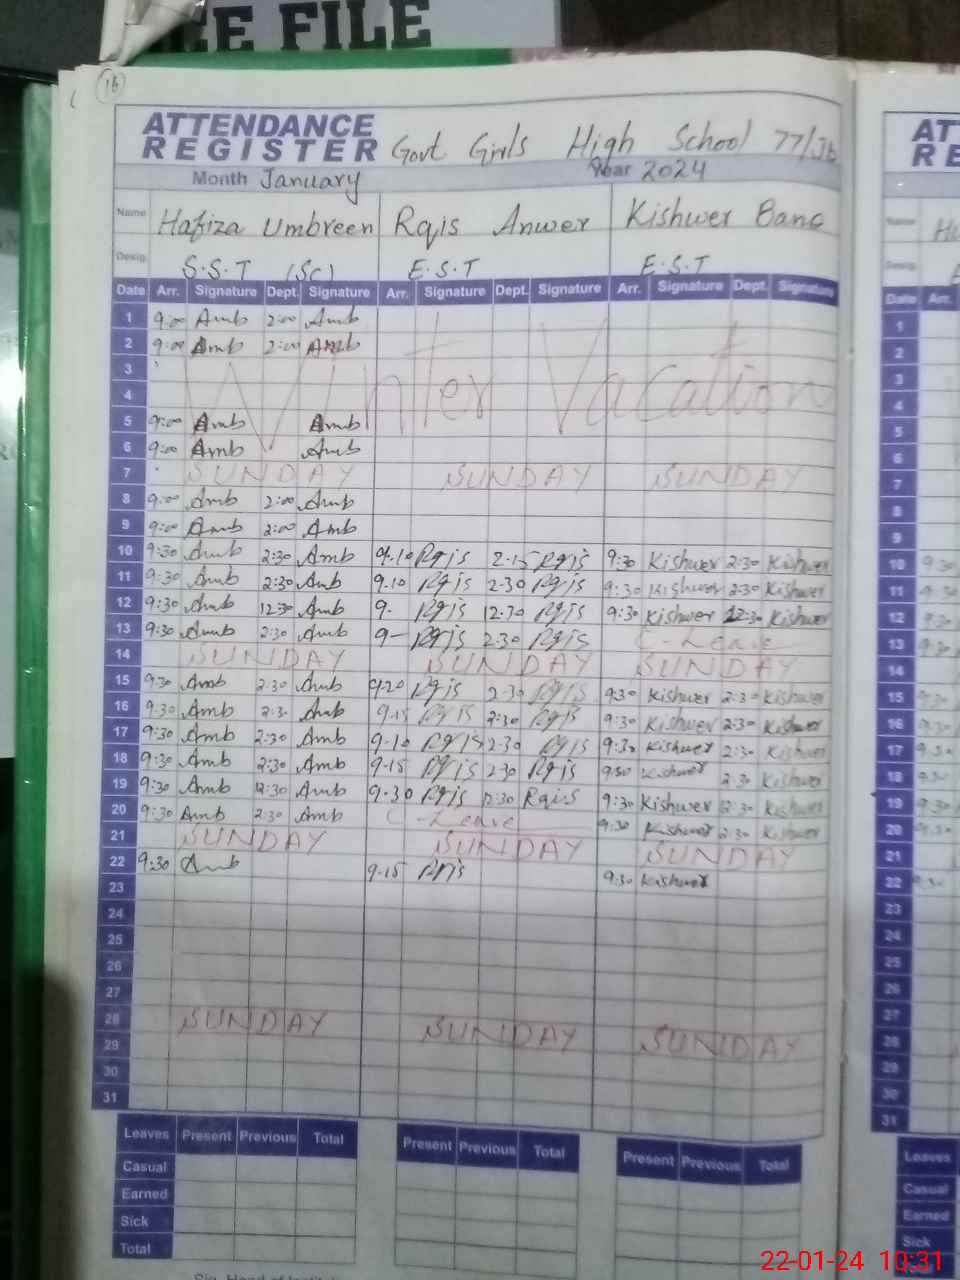 EE FILE
16
ATTENDANCE
REGISTER Govt Girls High School 77/JB
Month January Year 2024
Name Hafiza Umbreen Rqis Anwer Kishwer Bano
Desig. S.S.T (Sc) E.S.T E.S.T
Date Arr. Signature Dept. Signature Arr. Signature Dept. Signature Arr. Signature Dept. Signature
1 9:00 Amb 2:00 Amb
2 9:00 Amb 2:00 Amb
3
Winter Vacation
4
5 9:00 Amb Amb
6 9:00 Amb Amb
7 SUNDAY SUNDAY SUNDAY
8 9:00 Amb 2:00 Amb
9 9:00 Amb 2:00 Amb
10 9:30 Amb 2:30 Amb 9.10 Rqis 2.15 Rqis 9:30 Kishwer 2:30 Kishwer
11 9:30 Amb 2:30 Amb 9.10 Rqis 2.30 Rqis 9:30 Kishwer 2:30 Kishwer
12 9:30 Amb 12:30 Amb 9. Rqis 12.30 Rqis 9:30 Kishwer 12:30 Kishwer
13 9:30 Amb 2:30 Amb 9- Rqis 2.30 Rqis C-Leave
14 SUNDAY SUNDAY SUNDAY
15 9:30 Amb 2:30 Amb 9.20 Rqis 2.30 Rqis 9:30 Kishwer 2:30 Kishwer
16 9:30 Amb 2:3. Amb 9.15 Rqis 2:30 Rqis 9:30 Kishwer 2:30 Kishwer
17 9:30 Amb 2:30 Amb 9.10 Rqis 2.30 Rqis 9:30 Kishwer 2:30 Kishwer
18 9:30 Amb 2:30 Amb 9.15 Rqis 2.30 Rqis 9:30 Kishwer 2:30 Kishwer
19 9:30 Amb 12:30 Amb 9.30 Rqis 12:30 Rqis 9:30 Kishwer 12:30 Kishwer
20 9:30 Amb 2:30 Amb C-Leave 9:30 Kishwer 2:30 Kishwer
21 SUNDAY SUNDAY SUNDAY
22 9:30 Amb 9.15 Rqis 9:30 Kishwer
23
24
25
26
27
28 SUNDAY SUNDAY SUNDAY
29
30
31
Leaves Present Previous Total Present Previous Total Present Previous Total
Casual
Earned
Sick
Total
AT
RE
Name
Desig.
Date Arr.
1
2
3
4
5
6
7
8
9
10 9:30
11 9:30
12 9:30
13 9:30
14
15 9:30
16 9:30
17 9:30
18 9:30
19 9:30
20 9:30
21
22 9:30
23
24
25
26
27
28
29
30
31
Leaves
Casual
Earned
Sick
22-01-24 10:31